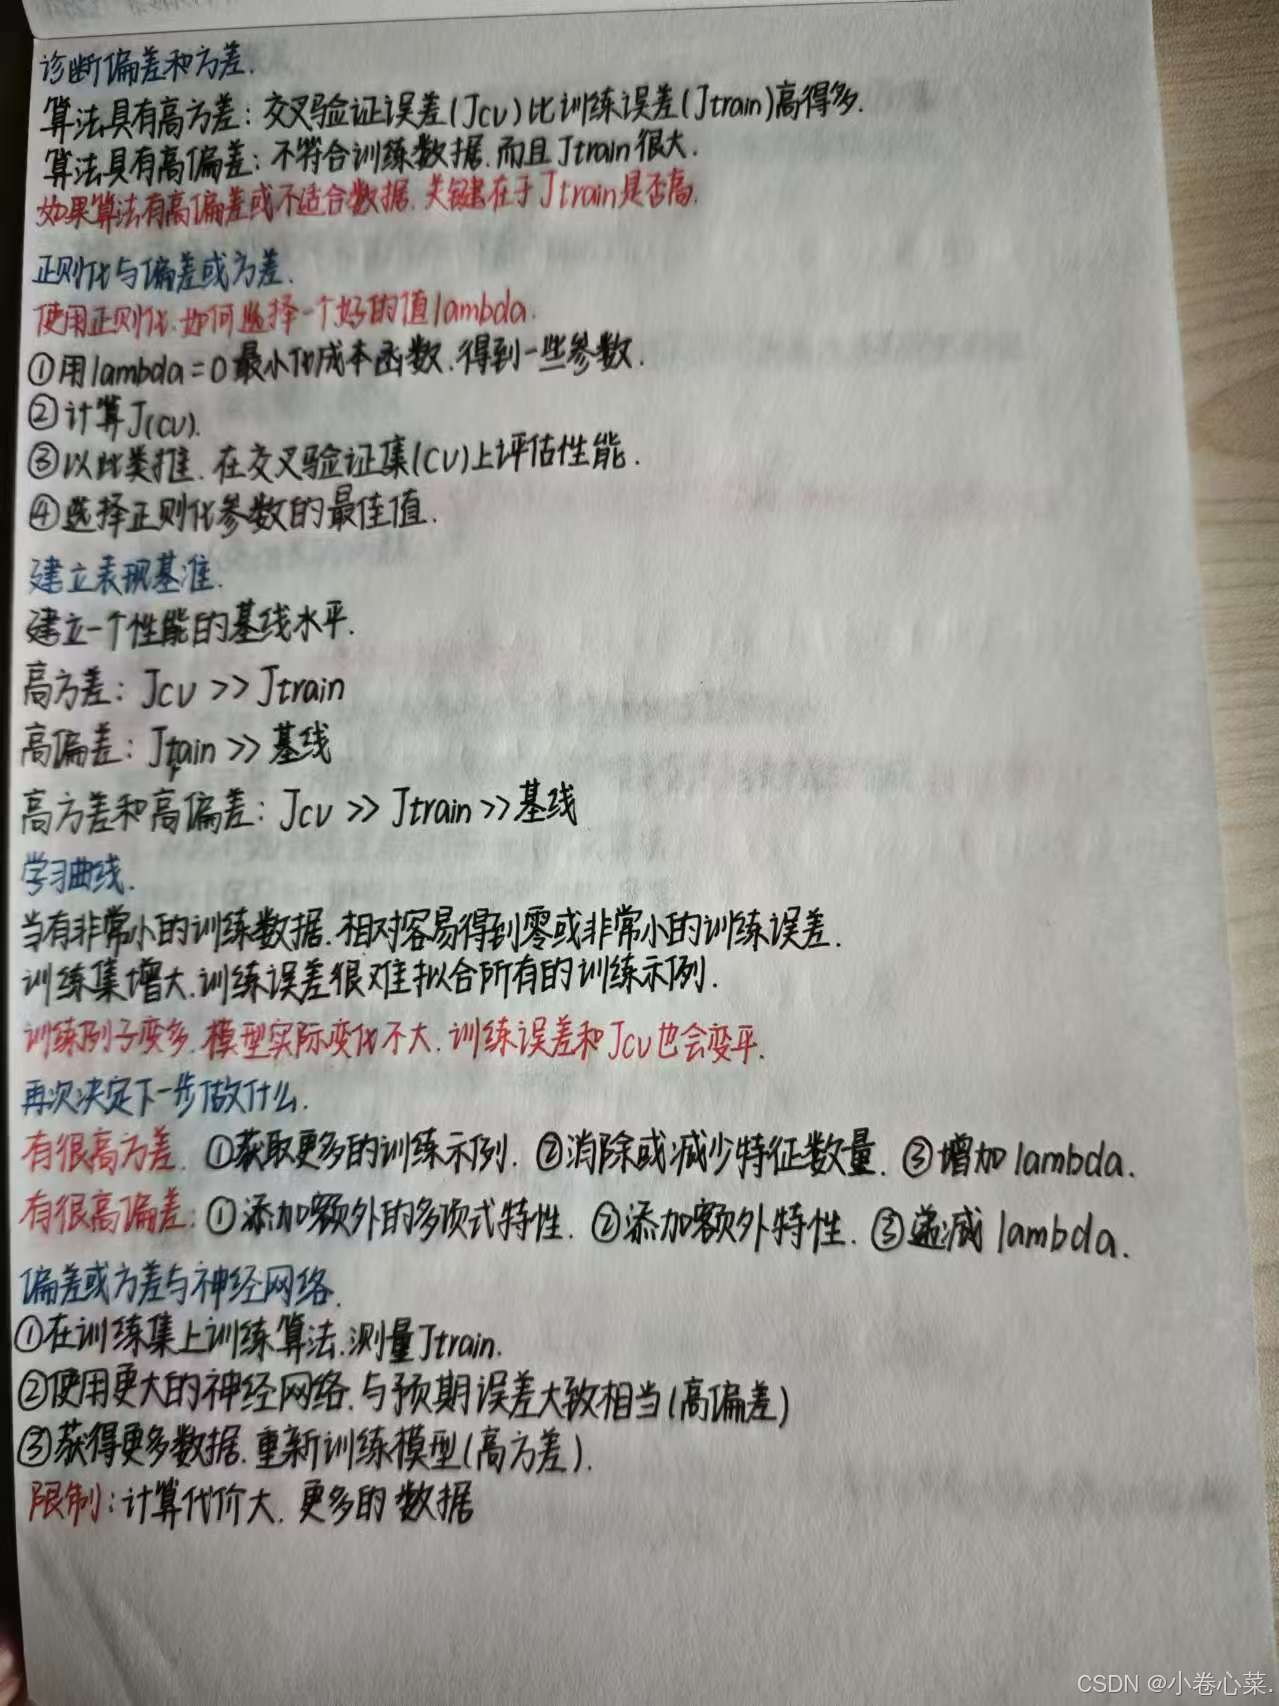 诊断偏差和方差.
算法具有高方差:交叉验证误差(Jcv)比训练误差(Jtrain)高得多.
算法具有高偏差:不符合训练数据.而且Jtrain很大.
如果算法有高偏差或不适合数据.关键在于Jtrain是否高.
正则化与偏差或方差.
使用正则化.如何选择一个好的值lambda.
①用lambda=0最小化成本函数.得到一些参数.
②计算J(cv).
③以此类推.在交叉验证集(CV)上评估性能.
④选择正则化参数的最佳值.
建立表现基准.
建立一个性能的基线水平.
高方差:Jcv>>Jtrain
高偏差:Jtrain>>基线
高方差和高偏差:Jcv>>Jtrain>>基线
学习曲线.
当有非常小的训练数据.相对容易得到零或非常小的训练误差.
训练集增大.训练误差很难拟合所有的训练示例.
训练例子变多.模型实际变化不大.训练误差和Jcv也会变平.
再次决定下一步做什么.
有很高方差.①获取更多的训练示例.②消除或减少特征数量.③增加lambda.
有很高偏差:①添加额外的多项式特性.②添加额外特性.③递减lambda.
偏差或方差与神经网络.
①在训练集上训练算法.测量Jtrain.
②使用更大的神经网络.与预期误差大致相当(高偏差)
③获得更多数据.重新训练模型(高方差).
限制:计算代价大.更多的数据
CSDN @小卷心菜.